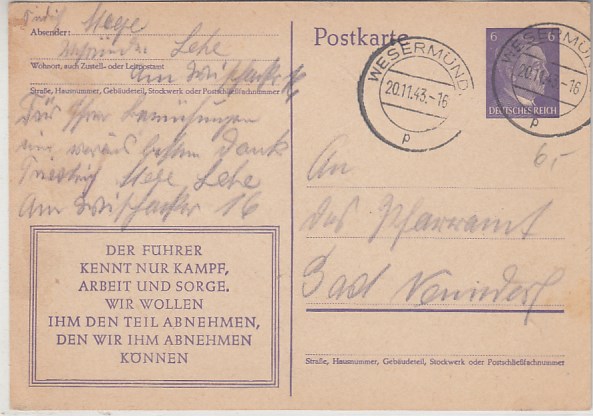 Absender: Mege
Lehe
Wohnort, auch Zustell- oder Leitpostamt
Am
Straße, Hausnummer, Gebäudeteil, Stockwerk oder Postschließfachnummer
Für Ihre Bemühungen
im voraus besten Dank
Friedrich Mege Lehe
Am 16
DER FÜHRER
KENNT NUR KAMPF,
ARBEIT UND SORGE.
WIR WOLLEN
IHM DEN TEIL ABNEHMEN,
DEN WIR IHM ABNEHMEN
KÖNNEN
Postkarte
WESERMÜND
20.11.43.-16
p
6 6
DEUTSCHES REICH
WESERMÜN
20.11.43.-16
p
6,-
An
das Pfarramt
Bad Nenndorf
Straße, Hausnummer, Gebäudeteil, Stockwerk oder Postschließfachnummer